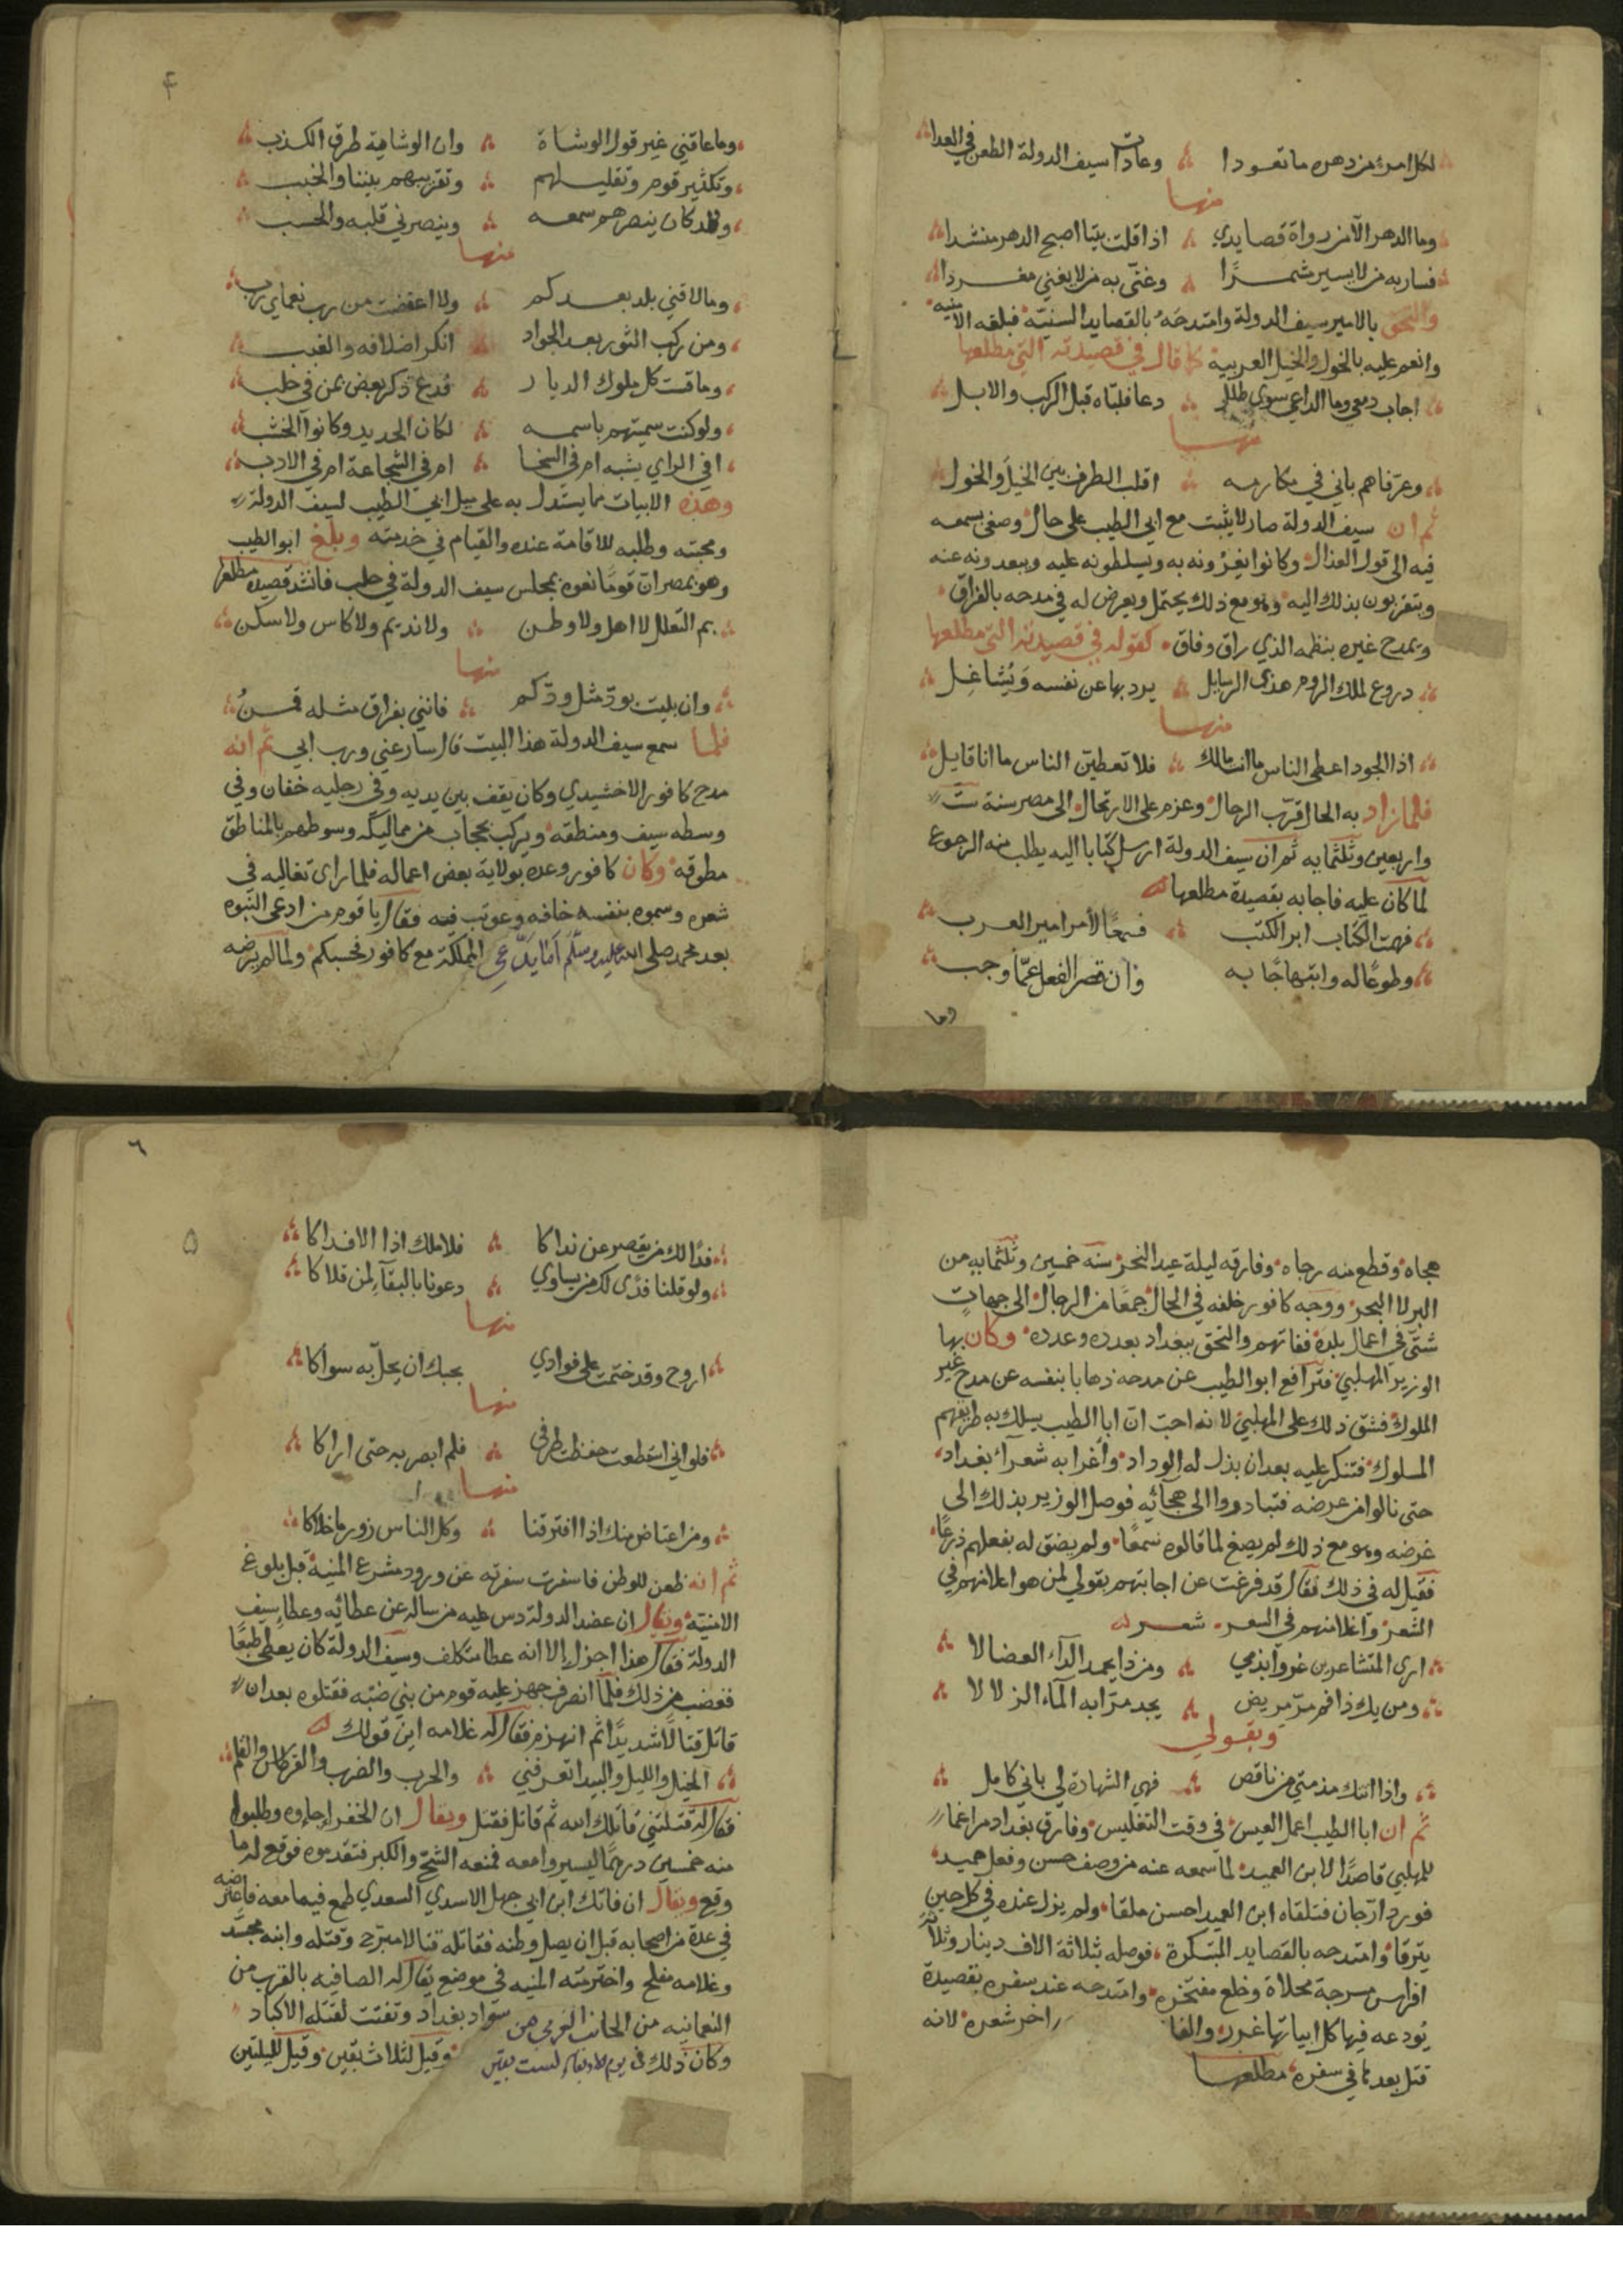 لكل امرئ من دهره ما تعودا ؞ وعادات سيف الدولة الطعن في العدا
منها
وما الدهر الا من رواة قصايدي ؞ اذا قلت بيتا اصبح الدهر منشدا
فسار به من لا يسير مشمرًا ؞ وغنّى به من لا يغني مغردا
والتحق بالامير سيف الدولة وامتدحه بالقصايد السنيّة فبلغه الامنيه
وانعم عليه بالخول والخيل العربية كما قال في قصيدته التي مطلعها
اجاب دمعي وما الداعي سوى طلل ؞ دعا فلبّاه قبل الركب والابل
منها
وعرفاهم باني في مكارمه ؞ اقلب الطرف بين الخيل والخول
ثم ان سيف الدولة صار لا يثبت مع ابي الطيب على حال وصغى بسمعه
فيه الى قول العذال وكانوا يغرونه به ويسلطونه عليه ويبعدونه عنه
ويتقربون بذلك اليه وهو مع ذلك يحتمل ويعرض له في مدحه بالفراق
ويمدح غيره بنظمه الذي راق وفاق كقوله في قصيدته التي مطلعها
دروع لملك الروم هذي الرسايل ؞ يرد بها عن نفسه وَيُشاغِل
منها
اذا الجود اعطى الناس ما انت مالك ؞ فلا تعطين الناس ما انا قايل
فلما زاد به الحال قرّب الرحال وعزم على الارتحال الى مصر سنة ستّ
واربعين وثلثمايه ثم ان سيف الدولة ارسل كتابا اليه يطلب منه الرجوع
لما كان عليه فاجابه بقصيدة مطلعها
فهمت الكتاب ابر الكتب ؞ فسمعًا لأمر امير العرب
وطوعًا له وابتهاجًا به ؞ وان قصر الفعل عمّا وجب
وما
۴
وما عاقني غير قول الوشاة ؞ وان الوشاية طرق الكذب
وتكثير قوم وتقليلهم ؞ وتقريبهم بيننا والخبب
وقد كان ينصرهم سمعه ؞ وينصرني قلبه والحسب
منها
وما لاقني بلد بعدكم ؞ ولا اعتضت من رب نعماي رب
ومن ركب الثور بعد الجواد ؞ انكر اظلافه والغبب
وما قست كل ملوك الديار ؞ فدع ذكر بعض بمن في حلب
ولو كنت سميتهم باسمه ؞ لكان الحديد وكانوا الخشب
افي الراي يشبه ام في السخا ؞ ام في الشجاعة ام في الادب
وهذه الابيات مما يستدل به على ميل ابي الطيب لسيف الدولة
ومحبته وطلبه للاقامة عنده والقيام في خدمته وبلغ ابو الطيب
وهو بمصر ان قومًا نعوه بمجلس سيف الدولة في حلب فانشد قصيدة مطلعها
بم التعلل لا اهل ولا وطن ؞ ولا نديم ولا كاس ولا سكن
منها
وان بليت بودّ مثل ودّكم ؞ فانني بفراق مثله قمنُ
فلما سمع سيف الدولة هذا البيت قال سار عني ورب ابي ثم انه
مدح كافور الاخشيدي وكان يقف بين يديه وفي رجليه خفان وفي
وسطه سيف ومنطقه ويركب بحجاب من مماليكه وسوطهم بالمناطق
مطوقه وكان كافور وعده بولاية بعض اعماله فلما راى تغاليه في
شعره وسموه بنفسه خافه وعوتب فيه فقال يا قوم من ادعى النبوه
بعد محمد صلى الله عليه وسلّم أمَا يَدّعي المملكة مع كافور فحسبكم ولما لم يرضه
هجاه وقطع منه رجاه وفارقه ليلة عيد النحر سنة خمسين وثلثمايه من
البر لا البحر ووجّه كافور خلفه في الحال جمعًا من الرجال الى جهاتٍ
شتّى في اعمال بلده ففاتهم والتحق ببغداد بعدده وعدده وكان بها
الوزير المهلبي فترافع ابو الطيب عن مدحه ذهابا بنفسه عن مدح غير
الملوك فشق ذلك على المهلبي لانه احب ان ابا الطيب يسلك به طريقهم
المسلوك فتنكر عليه بعد ان بذل له الوداد وأغرا به شعرآء بغداد
حتى نالوا من عرضه فتبادروا الى هجائه فوصل الوزير بذلك الى
غرضه وهو مع ذلك لم يصغ لما قالوه سمعًا ولم يضق له بفعلهم ذرعًا
فقيل له في ذلك فقال قد فرغت عن اجابتهم بقولي لمن هو اعلا منهم في
الشعر وأغلا منهم في السعر شعر
ارى المتشاعرين غروا بذمي ؞ ومن ذا يحمد الدآء العضالا
ومن يك ذا فم مرّ مريض ؞ يجد مرّا به المآء الزلالا
وبقولي
واذا اتتك مذمتي من ناقص ؞ فهي الشهادة لي باني كامل
ثم ان ابا الطيب اعمل العيس في وقت التغليس وفارق بغداد مراغما
للمهلبي قاصدًا لابن العميد لما سمعه عنه من وصف حسن وفعل حميد
فورد ارّجان فتلقاه ابن العميد احسن ملقا ولم يزل عنده في كل حين
يترقا وامتدحه بالقصايد المبتكرة فوصله بثلاثة الاف دينار وثلاثة
افراس مسرجة محلاة وخلع مفتخره وامتدحه عند سفره بقصيدة
يُودعه فيها كل ابياتها غرر والفا اخر شعره لانه
قتل بعدها في سفره مطلعها
٦
۵
فدًا لك من يقصر عن نداكا ؞ فلا ملك اذا الا فداكا
ولو قلنا فدًى لك من يساوي ؞ دعونا بالبقآءِ لمن قلاكا
منها
اروح وقد ختمت على فوادي ؞ بحبك ان يحلّ به سواكا
منها
فلو اني استطعت حفظت طرفي ؞ فلم ابصر به حتى اراكا
منها
ومن اعتاض منك اذا افترقنا ؞ وكل الناس زور ما خلاكا
ثم انه ظعن للوطن فاسفرت سفرته عن ورود مشرع المنية قبل بلوغ
الامنية ويقال ان عضد الدولة دس عليه من ساله عن عطائه وعطا سيف
الدولة فقال هذا اجزل الا انه عطا متكلف وسيف الدولة كان يعطي طبعًا
فغضب من ذلك فلما انصرف جهز عليه قوم من بني ضبّه فقتلوه بعد ان
قاتل قتالًا شديدًا ثم انهزم فقال له غلامه اين قولك
الخيل والليل والبيدا تعرفني ؞ والحرب والضرب والقرطاس والقلم
فقال له قتلتني قاتلك الله ثم قاتل فقتل ويقال ان الخفرا جاءوه وطلبوا
منه خمسين درهمًا ليسيروا معه فمنعه الشحّ والكبر فتقدموه فوقع له ما
وقع ويقال ان فاتك ابن ابي جهل الاسدي السعدي طمع فيما معه فاعترضه
في عدة من اصحابه قبل ان يصل وطنه فقاتله قتالا مبرّح وقتله وابنه محسّد
وغلامه مفلح واخترمته المنيه في موضع يقال له الصافيه بالقرب من
النعمانيه من الجانب الغربي من سواد بغداد وتفتت لقتله الاكباد
وكان ذلك في يوم الاربعاء لست بقين وقيل لثلاث بقين وقيل لليلتين